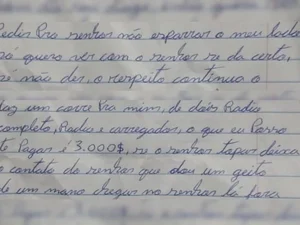 Pedir Pra senhor não esparrar o meu lado
só quero ver com o senhor se da certo,
se não der, o respeito continua o
faz um corre Pra mim, de dois Radio
completo, Radio e carregador, o que eu Posso
te Pagar é 3.000$, se o senhor topar deixa
o contato do senhor que dou um geito
de um mano chegar no senhor lá fora